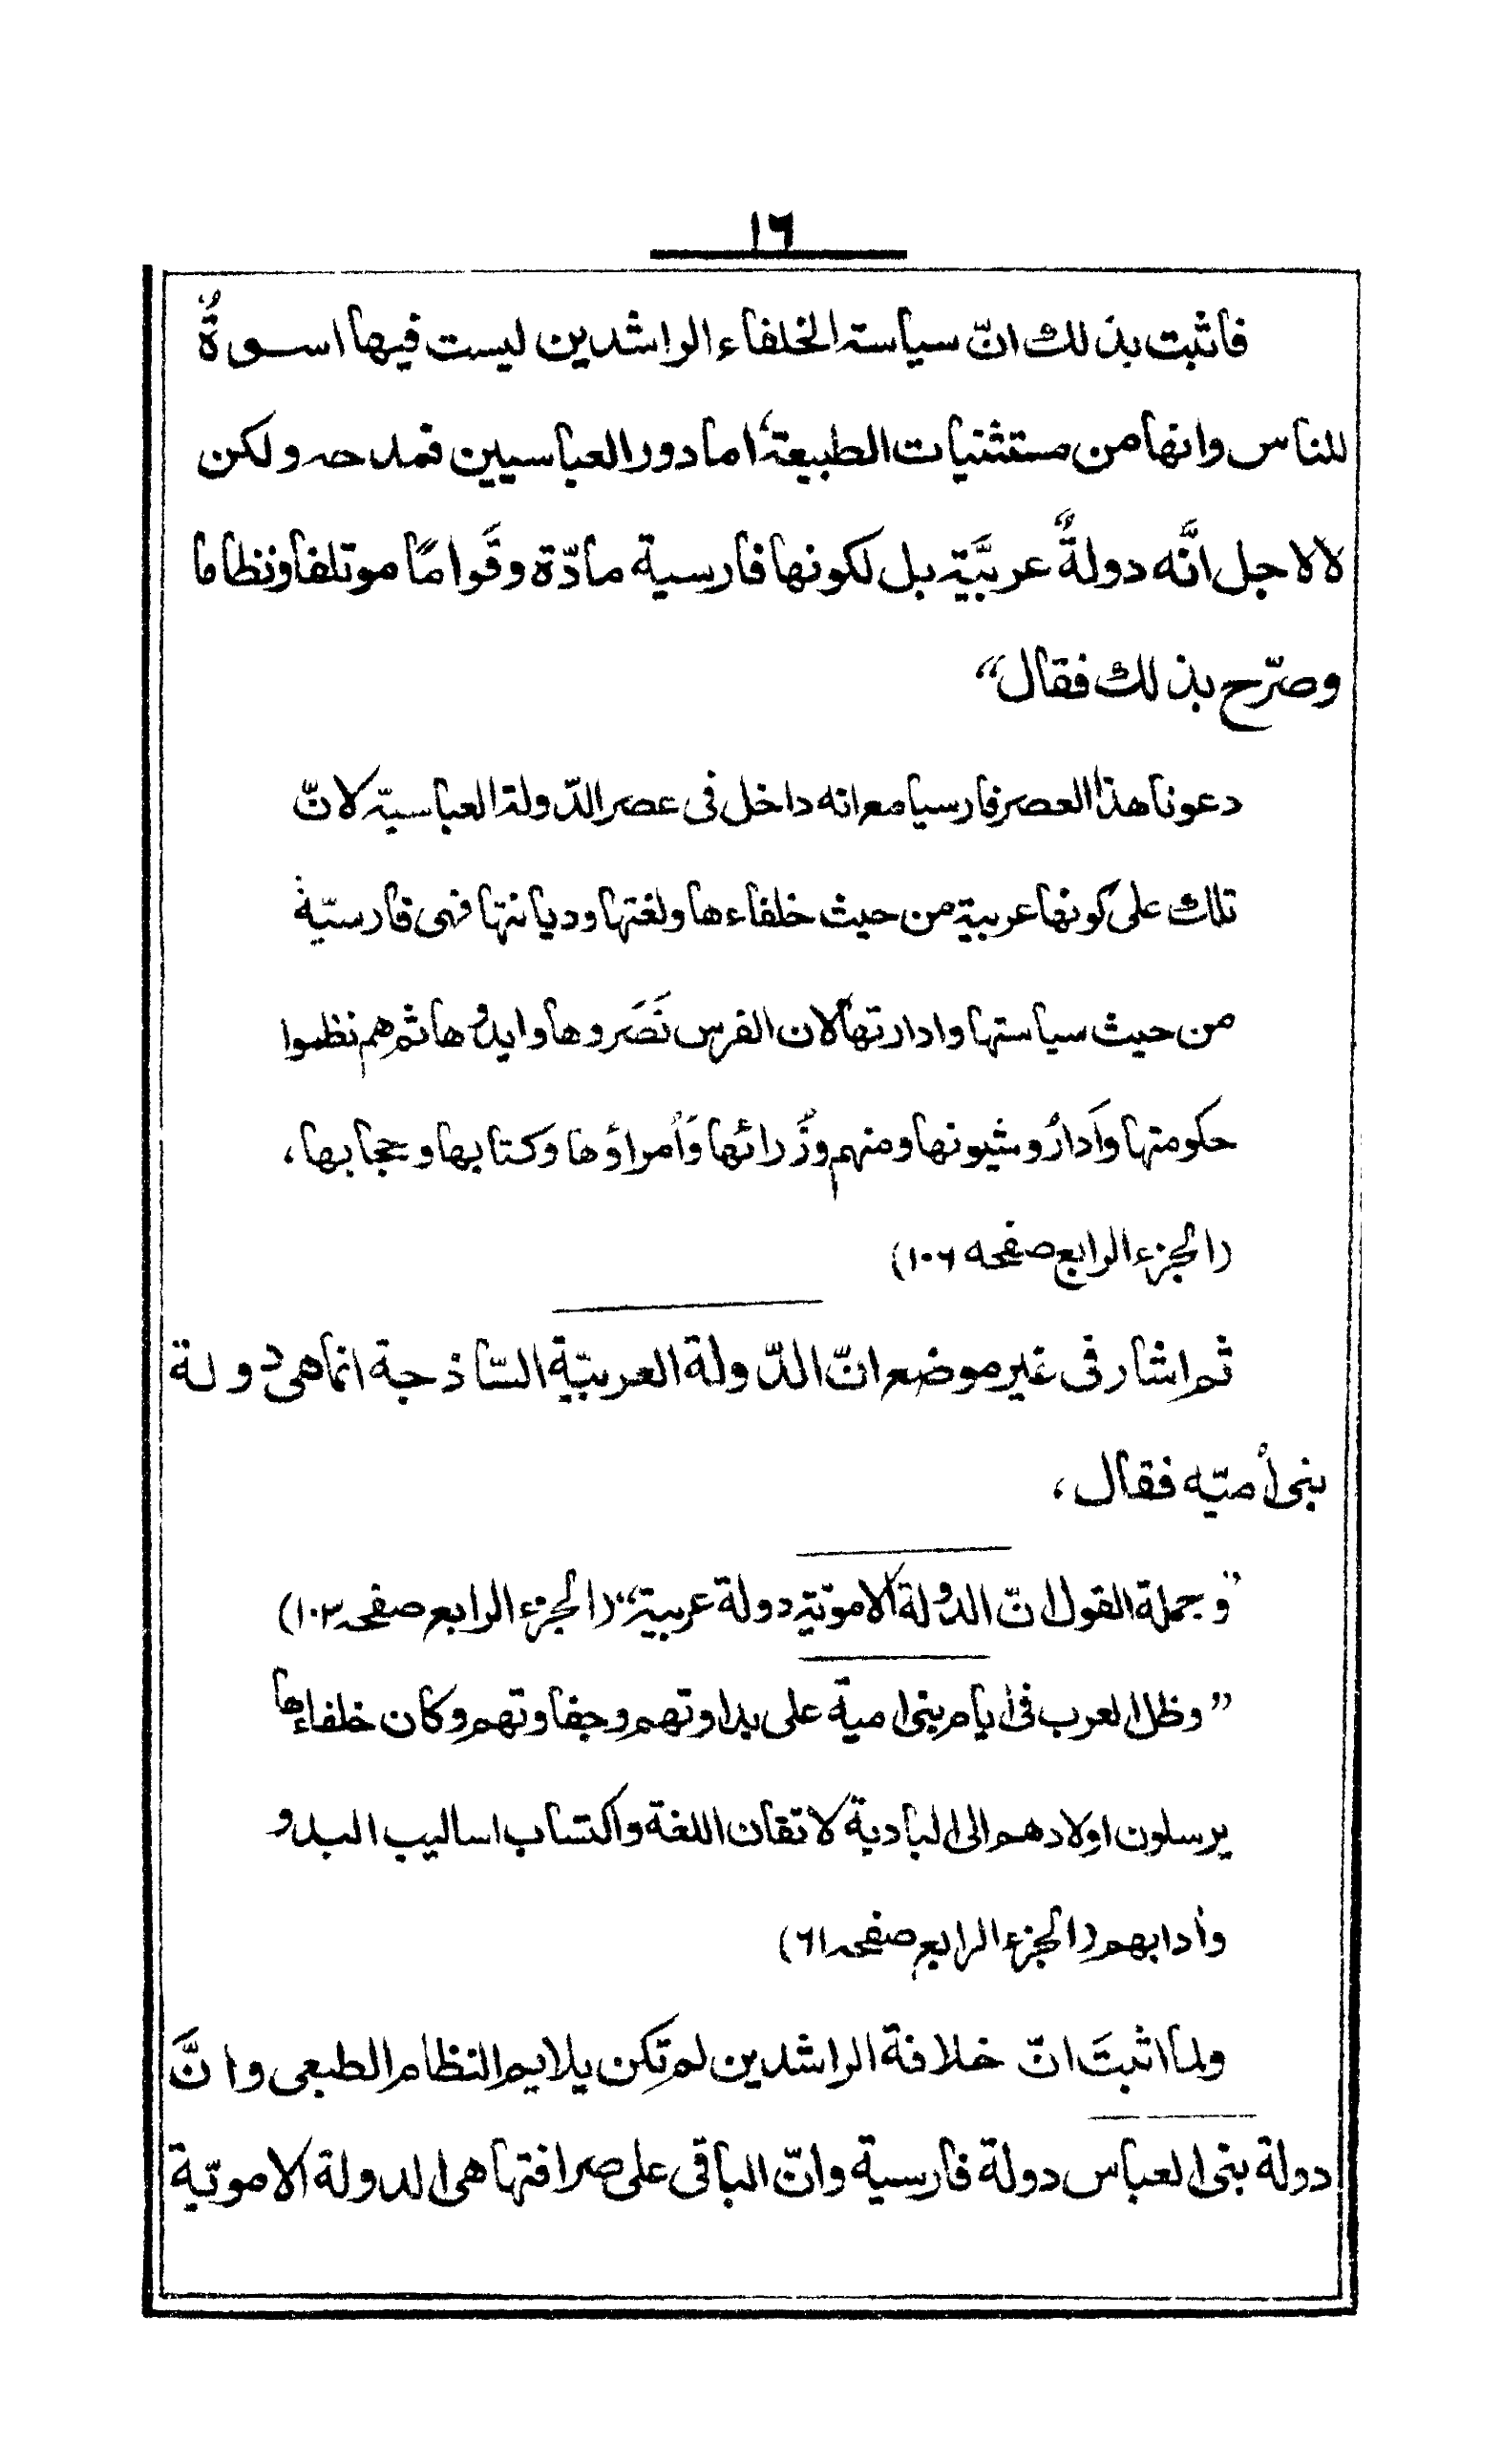 ١٦
فاثبت بذلك انّ سياسة الخلفاء الراشدين ليست فيها اسوةٌ
للناس وانها من مستثنيات الطبيعة، اما دور العباسيين فمدحه ولكن
لا لاجل انَّه دولةٌ عربيَّة بل لكونها فارسية مادّة وقَوامًا موتلفا ونظاما
وصرّح بذلك فقال"
دعونا هذا العصر فارسيا مع انه داخل فى عصر الدّولة العباسيّة لانّ
تلك على كونها عربية من حيث خلفاءها ولغتها وديانتها فهى فارسيّة
من حيث سياستها وادارتها لان الفرس نَصَروها وايدوها ثم هم نظموا
حكومتها وأداروشيونها ومنهم وُزرائها وَأُمراؤها وكتابها وحجابها،
(الجزء الرابع صفحه ١٠٦)
ثم اشار فى غير موضع انّ الدّولة العربيّة السّاذجة انما هى دولة
بنى أميّه فقال،
"وجملة القول انّ الدولة الامويّة دولة عربية" (الجزء الرابع صفحه ١٠٣)
"وظل العرب فى ايام بنى امية على بداوتهم وجفاوتهم وكان خلفاءها
يرسلون اولادهم الى البادية لاتقان اللغة واكتساب اساليب البدو
وأدابهم (الجزء الرابع صفحه ٦١)
ولما اثبتَ انّ خلافة الراشدين لم تكن يلايم النظام الطبعى وانَّ
دولة بنى العباس دولة فارسية وانّ الباقى على صرافتها هى الدولة الامويّة